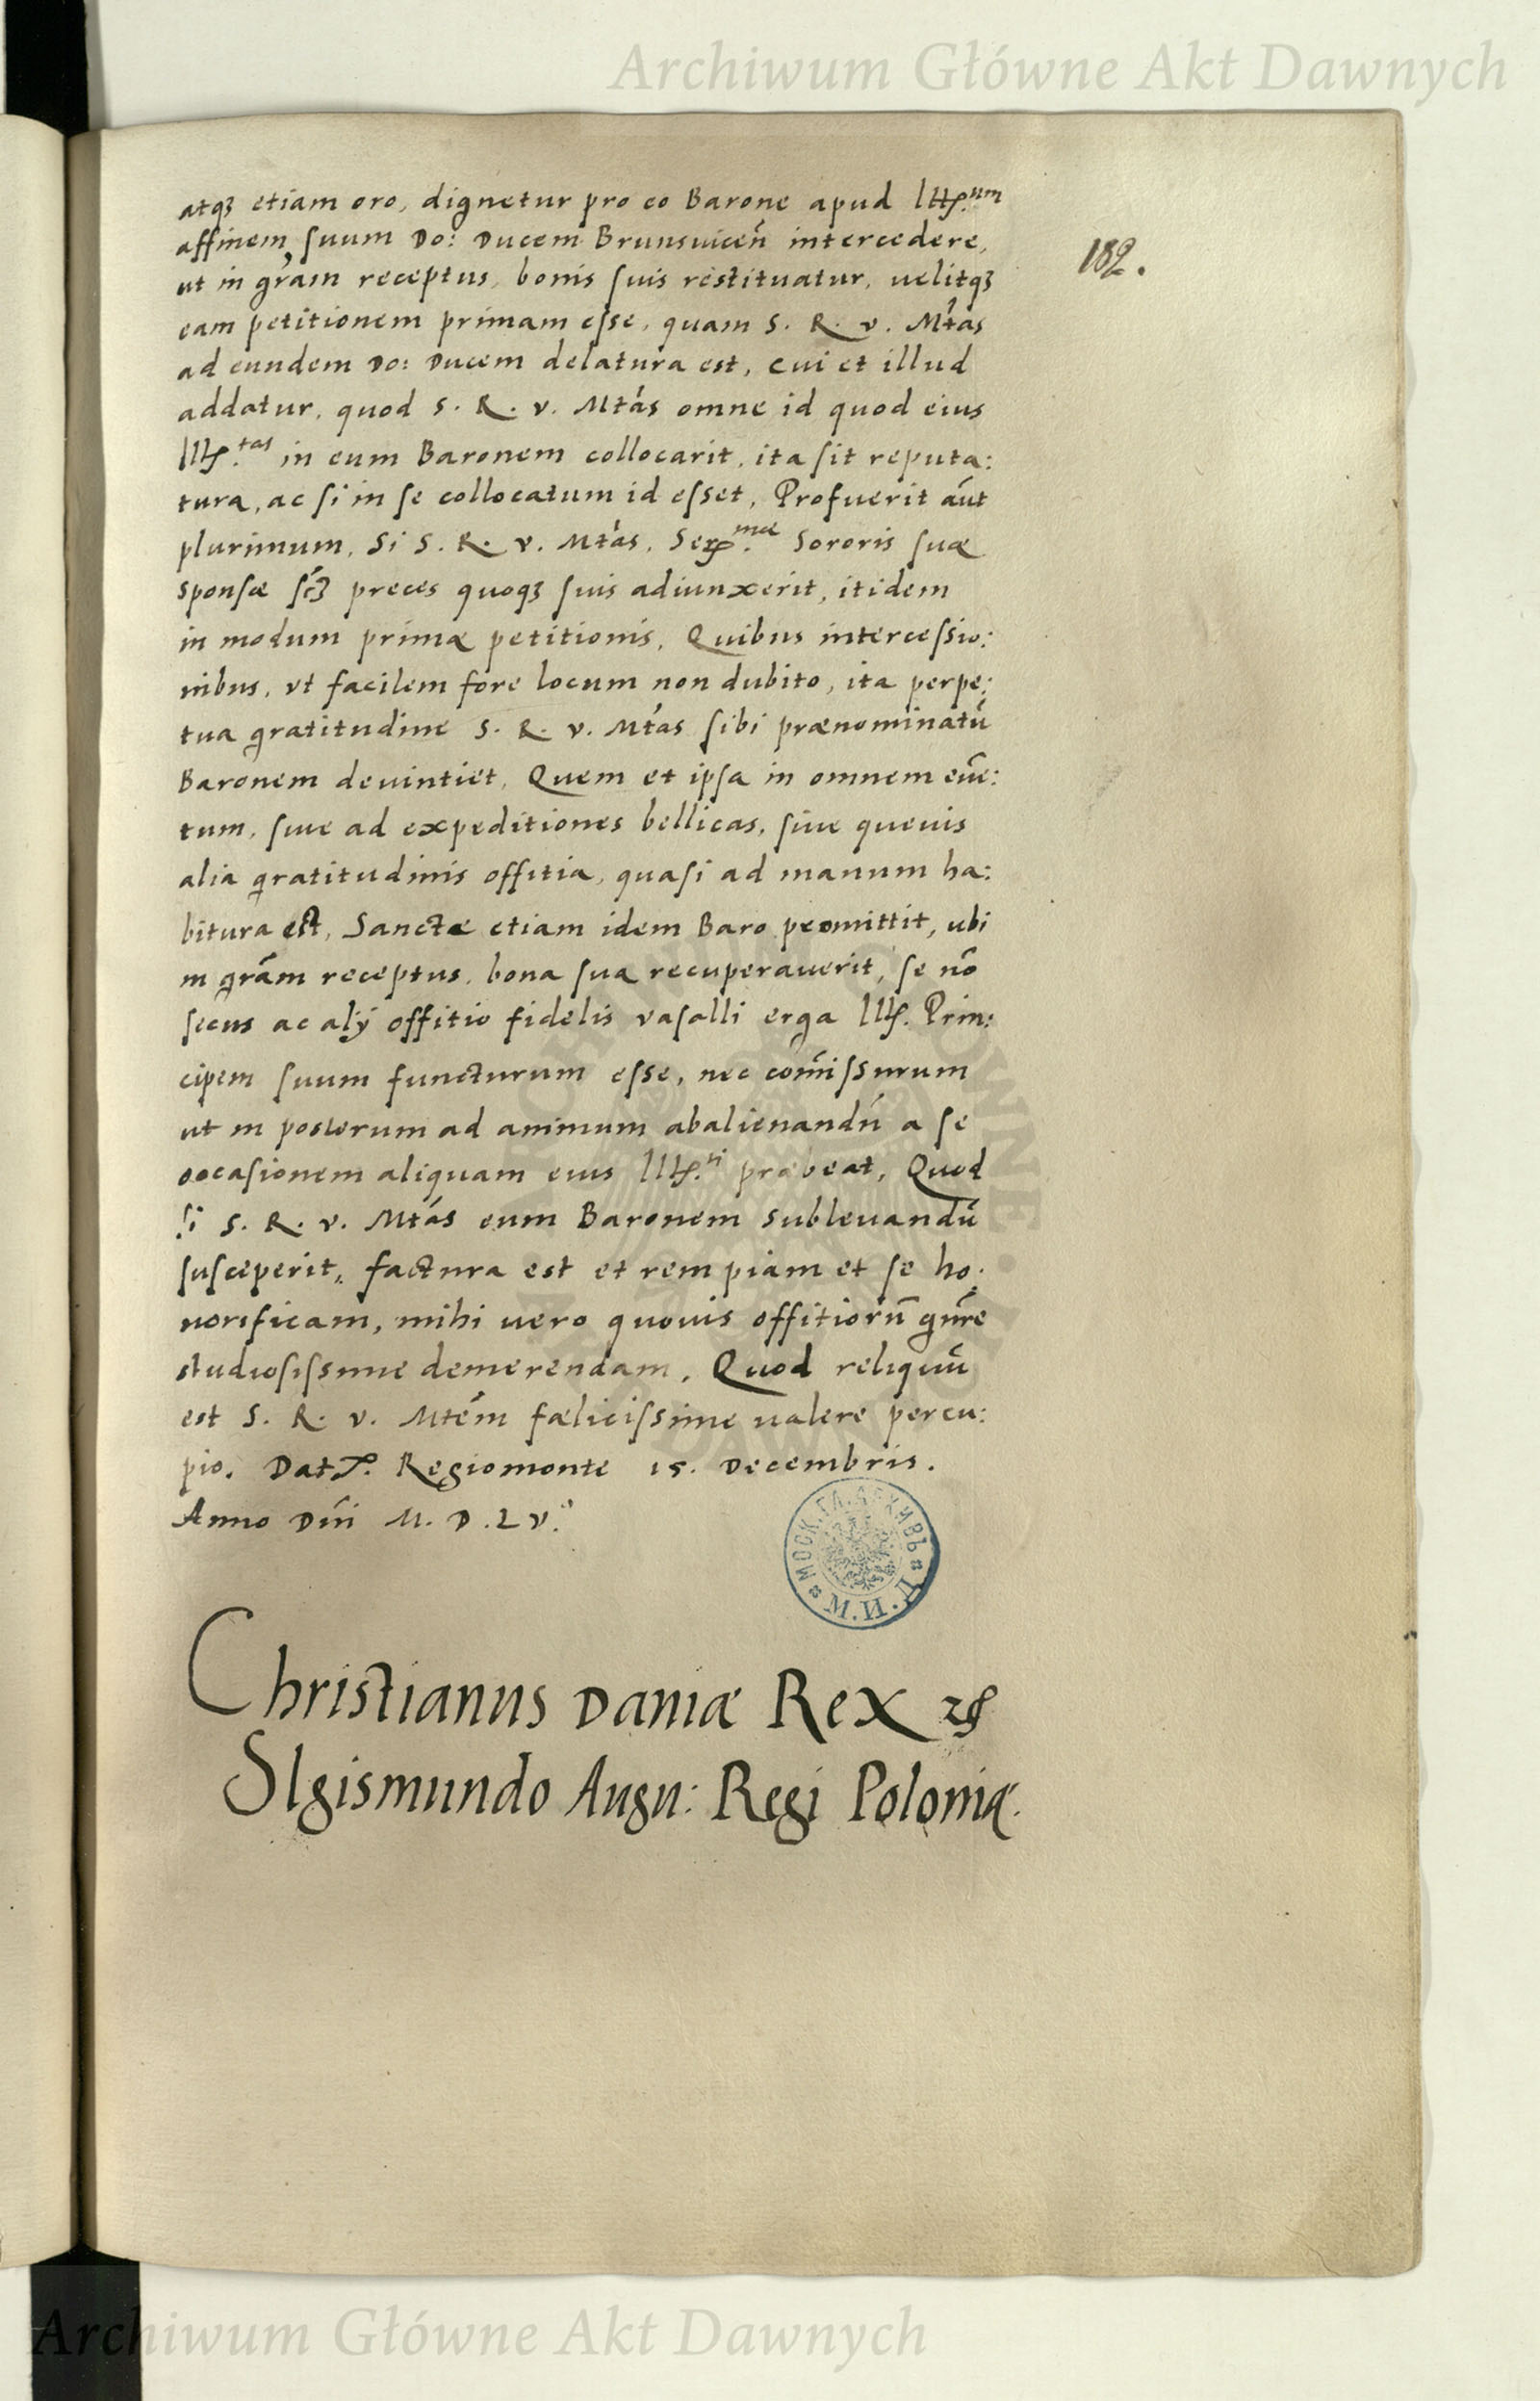 Archiwum Główne Akt Dawnych
182.
atqꝫ etiam oro, dignetur pro eo Barone apud Illꝭ.um
affinem suum Do: Ducem Brunsuiceñ intercedere,
ut in grãm receptus, bonis suis restituatur, uelitqꝫ
eam petitionem primam esse, quam S. R. v. Mtás
ad eundem Do: Ducem delatura est, cui et illud
addatur, quod S. R. v. Mtás omne id quod eius
Illꝭ.tas in eum Baronem collocarit, ita sit reputa:
tura, ac si in se collocatum id esset, Profuerit aũt
plurimum, Si S. R. v. Mtás, Serꝭ.mæ Sororis suæ
sponsæ scꝫ preces quoqꝫ suis adiunxerit, itidem
in modum primæ petitionis, Quibus intercessio:
nibus, vt facilem fore locum non dubito, ita perpe:
tua gratitudine S. R. v. Mtás sibi prænominatũ
Baronem deuintiet, Quem et ipsa in omnem euẽ:
tum, siue ad expeditiones bellicas, siue queuis
alia gratitudinis offitia, quasi ad manum ha:
bitura est, Sanctæ etiam idem Baro promittit, ubi
in grãm receptus, bona sua recuperauerit, se nõ
secus ac alÿ offitio fidelis vasalli erga Illꝭ. Prin:
cipem suum functurum esse, nec com̃issurum
ut in posterum ad animum abalienandũ a se
occasionem aliquam eius Illꝭ.ti præbeat, Quod
si S. R. v. Mtás eum Baronem subleuandũ
susceperit, factura est et rem piam et se ho:
norificam, mihi uero quouis offitiorũ gñre
studiosissime demerendam, Quod reliquũ
est S. R. v. Mtém fælicissime ualere percu:
pio. Datꝭ. Regiomonte 15. Decembris.
Anno Dñi M. D. L V.
МОСК.ГЛ.АРХИВЪ
М.И.Д
Christianus Daniæ Rex ꝛꝭ
SIgismundo Augu: Regi Poloniæ.
Archiwum Główne Akt Dawnych